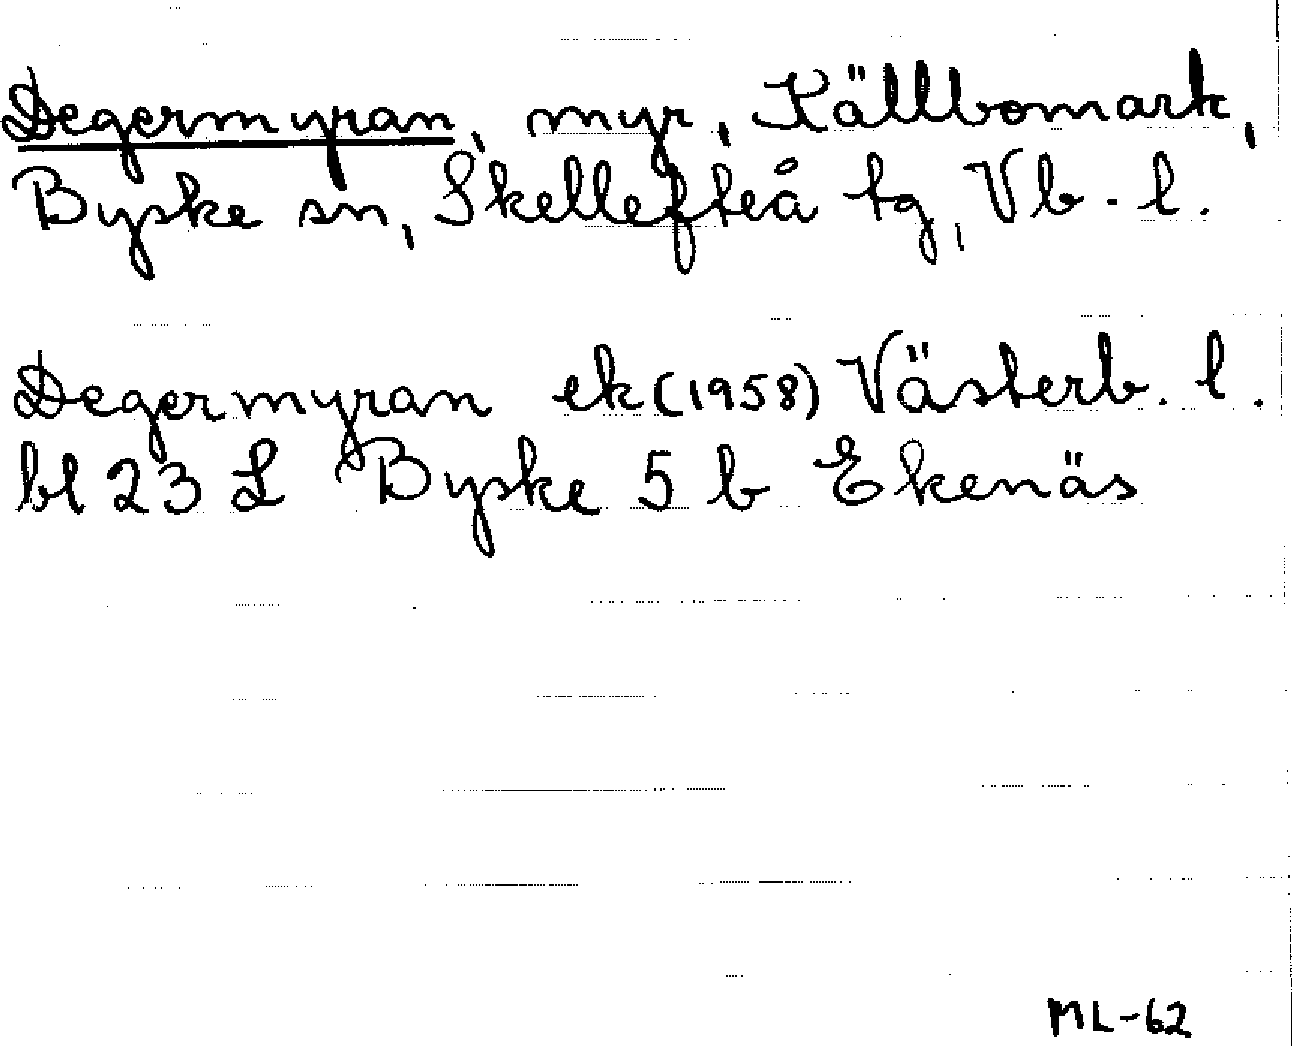 Degermyran, myr, Källbomark,
Byske sn, Skellefteå tg, Vb. l.
Degermyran ek (1958) Västerb. l.
bl 23 L Byske 5 b Ekenäs
ML-62